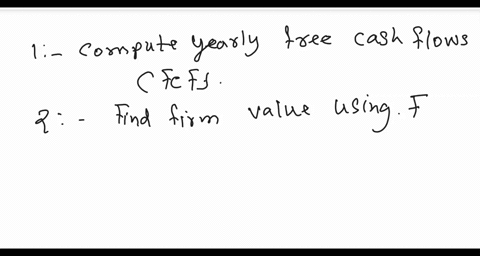 1:- Compute yearly free cash flows
(FCFs.
2:- Find firm value using. F